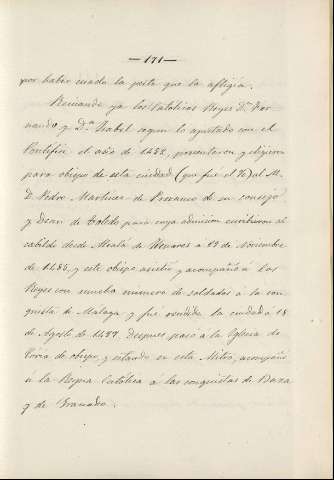 —171—
por haber cesado la peste que la afligia.
Reinando ya los Católicos Reyes Dn. Fer-
nando y D.ª Isabel segun lo ajustado con el
Pontífice el año de 1482, presentaron y eligieron
para obispo de esta ciudad (que fue el 76) al M.
D. Pedro Martinez de Prexamo de su consejo
y Dean de Toledo para cuya admision escribieron al
cabildo desde Alcalá de Henares a 19 de Noviembre
de 1485, y este obispo asistió y acompañó á los
Reyes con mucho numero de soldados á la con-
quista de Malaga y fué rendida la ciudad á 18
de Agosto de 1487. despues pasó a la Iglesia de
Coria de obispo, y estando en esta Mitra, acompañó
á la Reyna Católica a las conquistas de Baza
y de Granada.